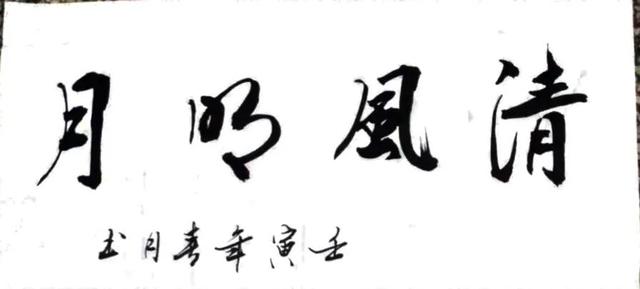 清風明月
壬寅年春月书